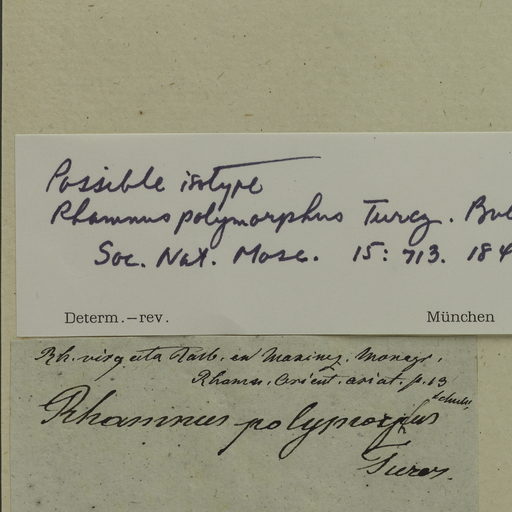 Possible isotype
Rhamnus polymorphus Turcz. Bul
Soc. Nat. Mosc. 15: 713. 184
Determ.—rev. München
Rh. virgata Roxb. ex Maximez. Monogr.
Rhamn. Orient. asiat. p. 13
Rhamnus polymorphus
Turcz.